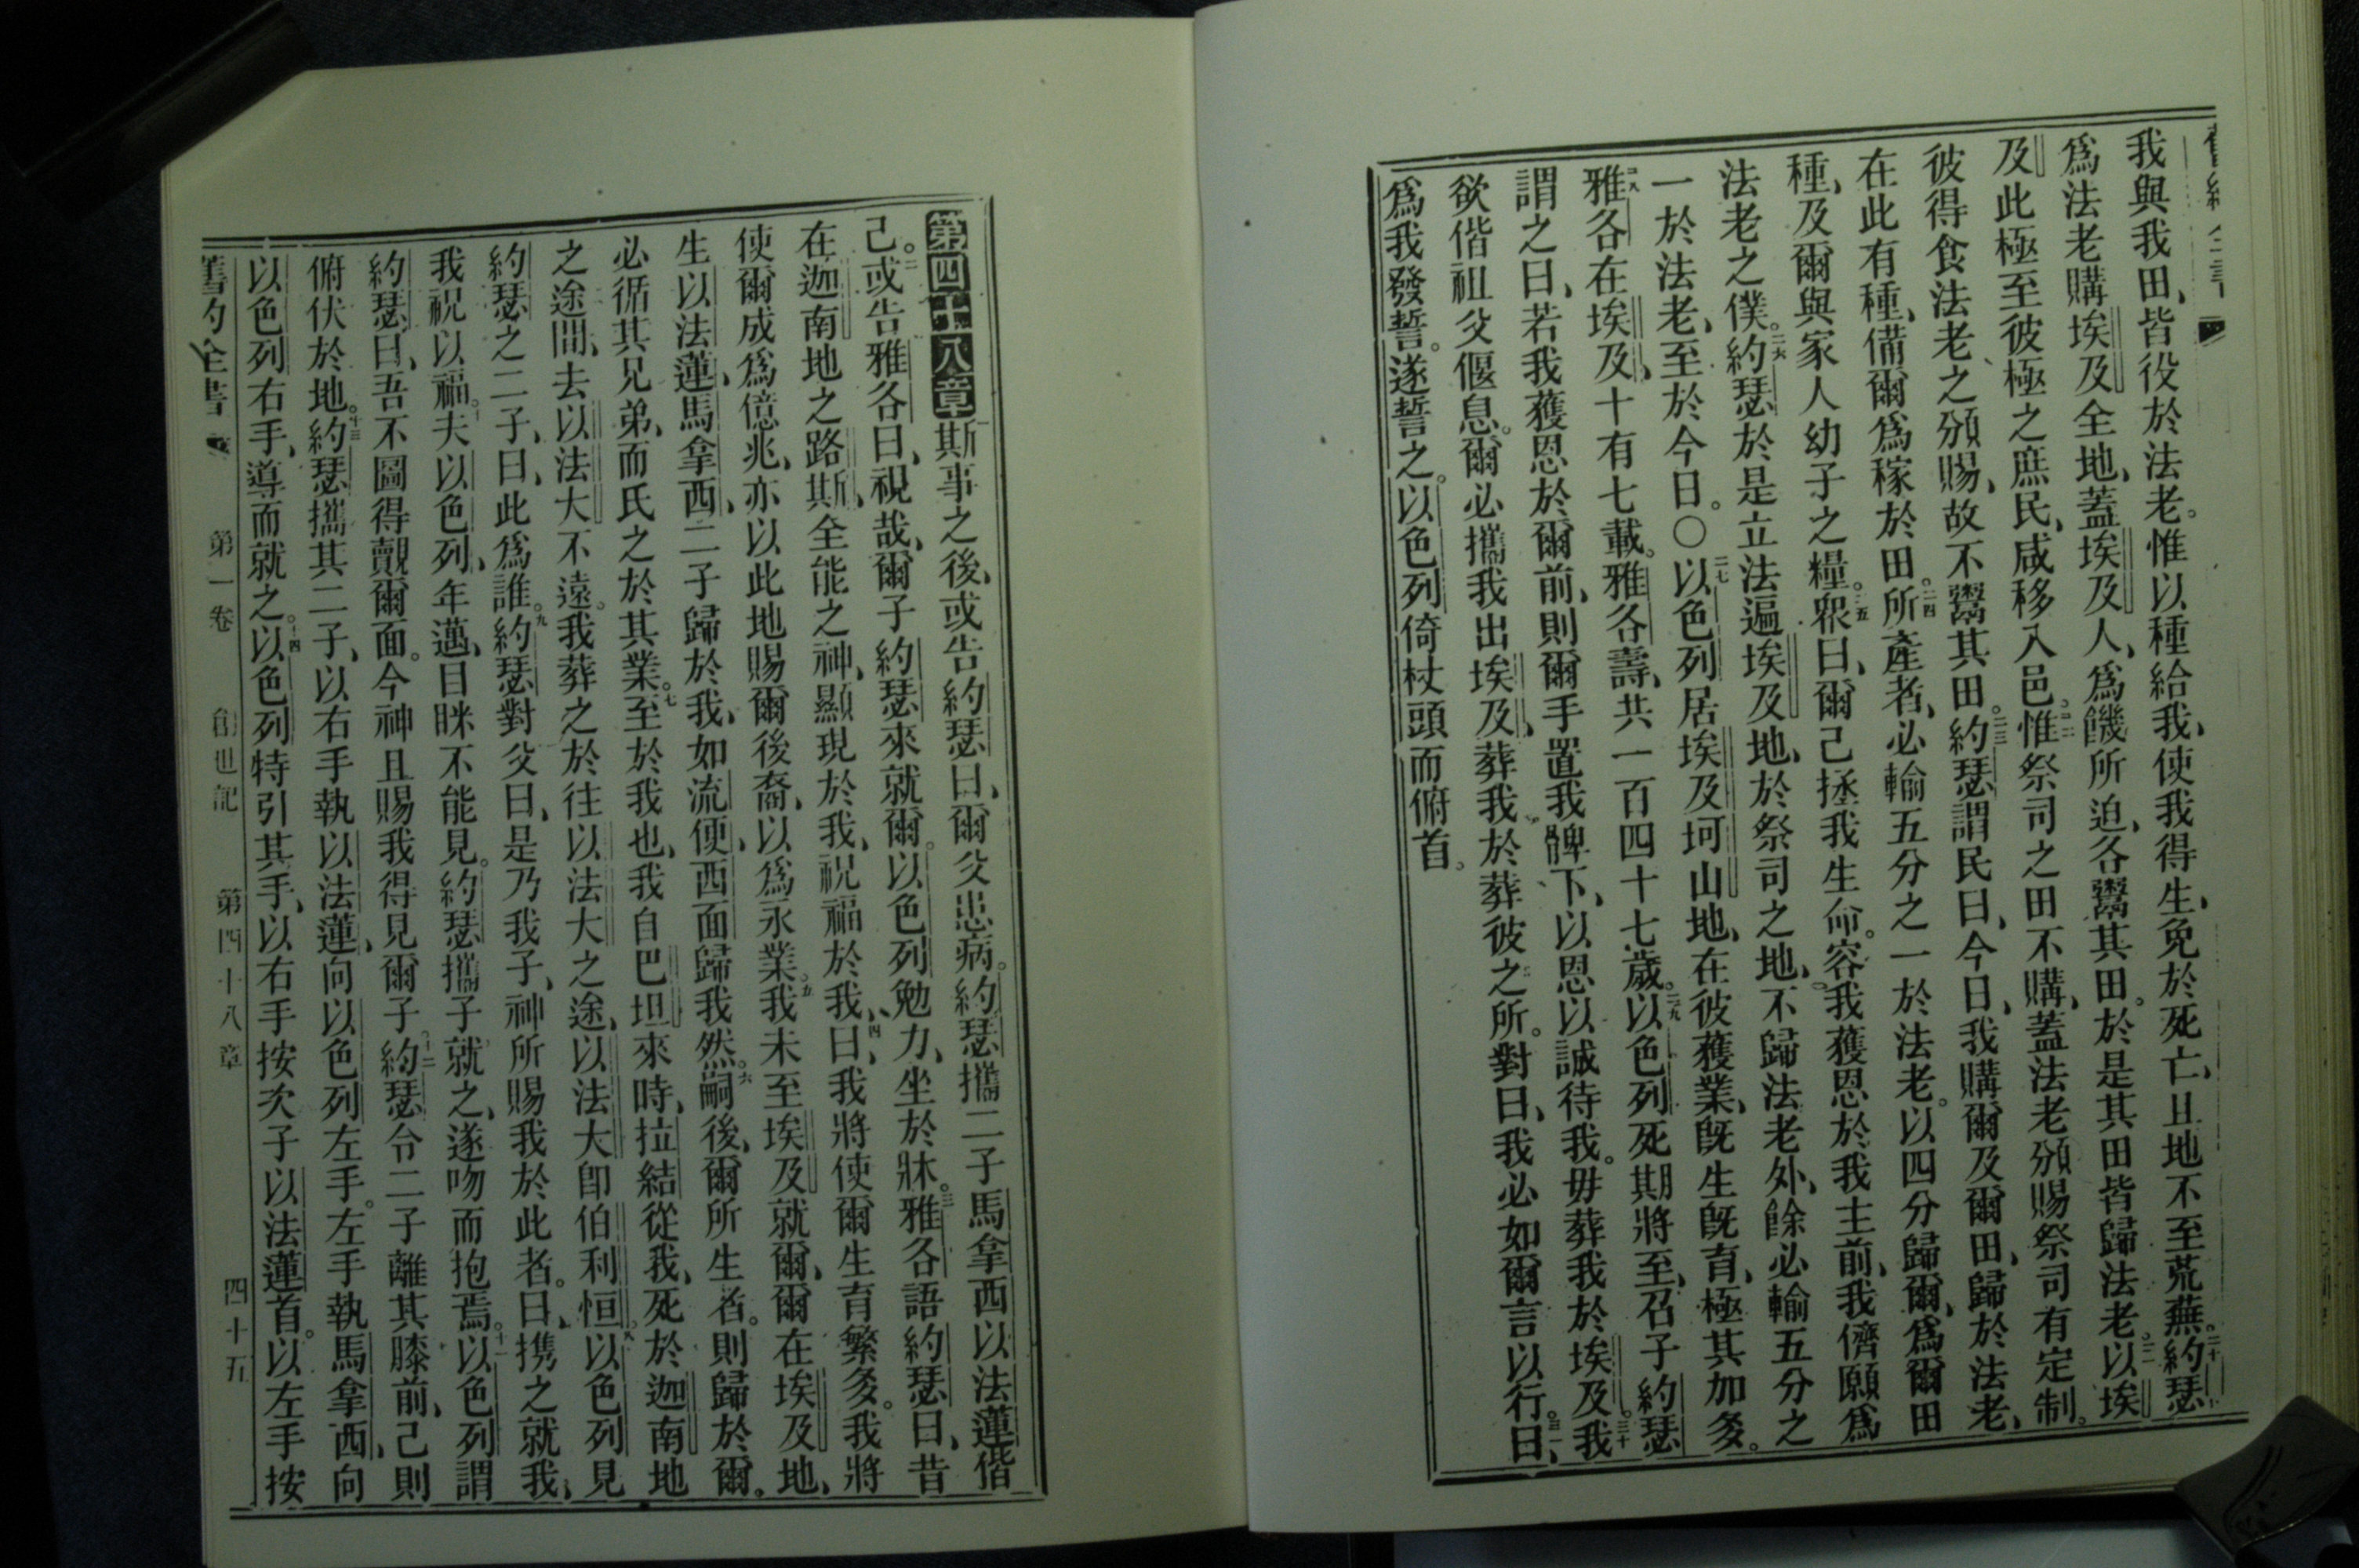 我與我田、皆役於法老。惟以種給我、使我得生、免於死亡、且地不至荒蕪。二十約瑟
爲法老購埃及全地、蓋埃及人、爲饑所迫、各鬻其田。於是其田皆歸法老。二一以埃
及此極至彼極之庶民、咸移入邑。二二惟祭司之田不購、蓋法老頒賜祭司有定制。
彼得食法老之頒賜、故不鬻其田。二三約瑟謂民曰、今日、我購爾及爾田、歸於法老、
在此有種、備爾爲稼於田。二四所產者、必輸五分之一於法老。以四分歸爾、爲爾田
種、及爾與家人幼子之糧。二五衆曰、爾已拯我生命。容我獲恩於我主前、我儕願爲
法老之僕。二六約瑟於是立法遍埃及地、於祭司之地、不歸法老外、餘必輸五分之
一於法老、至於今日。〇二七以色列居埃及坷山地、在彼獲業、旣生旣育、極其加多。
二八雅各在埃及、十有七載。雅各壽、共一百四十七歲。二九以色列死期將至、召子約瑟
謂之曰、若我獲恩於爾前、則爾手置我髀下、以恩以誠待我。毋葬我於埃及。三十我
欲偕祖父偃息。爾必攜我出埃及、葬我於葬彼之所。對曰、我必如爾言以行。三一曰、
爲我發誓。遂誓之。以色列倚杖頭而俯首。
第四十八章 一斯事之後、或告約瑟曰、爾父患病。約瑟攜二子馬拿西以法蓮偕
己。二或告雅各曰、視哉、爾子約瑟來就爾。以色列勉力、坐於牀。三雅各語約瑟曰、昔
在迦南地之路斯、全能之神、顯現於我、祝福於我、四曰、我將使爾生育繁多。我將
使爾成爲億兆、亦以此地賜爾後裔、以爲永業。五我未至埃及就爾、爾在埃及地、
生以法蓮、馬拿西、二子歸於我、如流便、西面歸我然。六嗣後、爾所生者。則歸於爾。
必循其兄弟、而氏之於其業。七至於我也、我自巴坦來時、拉結從我、死於迦南地
之途間、去以法大不遠。我葬之於往以法大之途、以法大卽伯利恒。八以色列見
約瑟之二子、曰、此爲誰。九約瑟對父曰、是乃我子、神所賜我於此者。曰、携之就我、
我祝以福。十夫以色列、年邁、目眯不能見。約瑟攜子就之、遂吻而抱焉。十一以色列謂
約瑟曰、吾不圖得覿爾面。今神且賜我得見爾子。十二約瑟令二子離其膝前、己則
俯伏於地。十三約瑟攜其二子、以右手執以法蓮、向以色列左手。左手執馬拿西、向
以色列右手、導而就之。十四以色列特引其手、以右手按次子以法蓮首。以左手按
舊約全書 第一卷 創世記 第四十八章 四十五